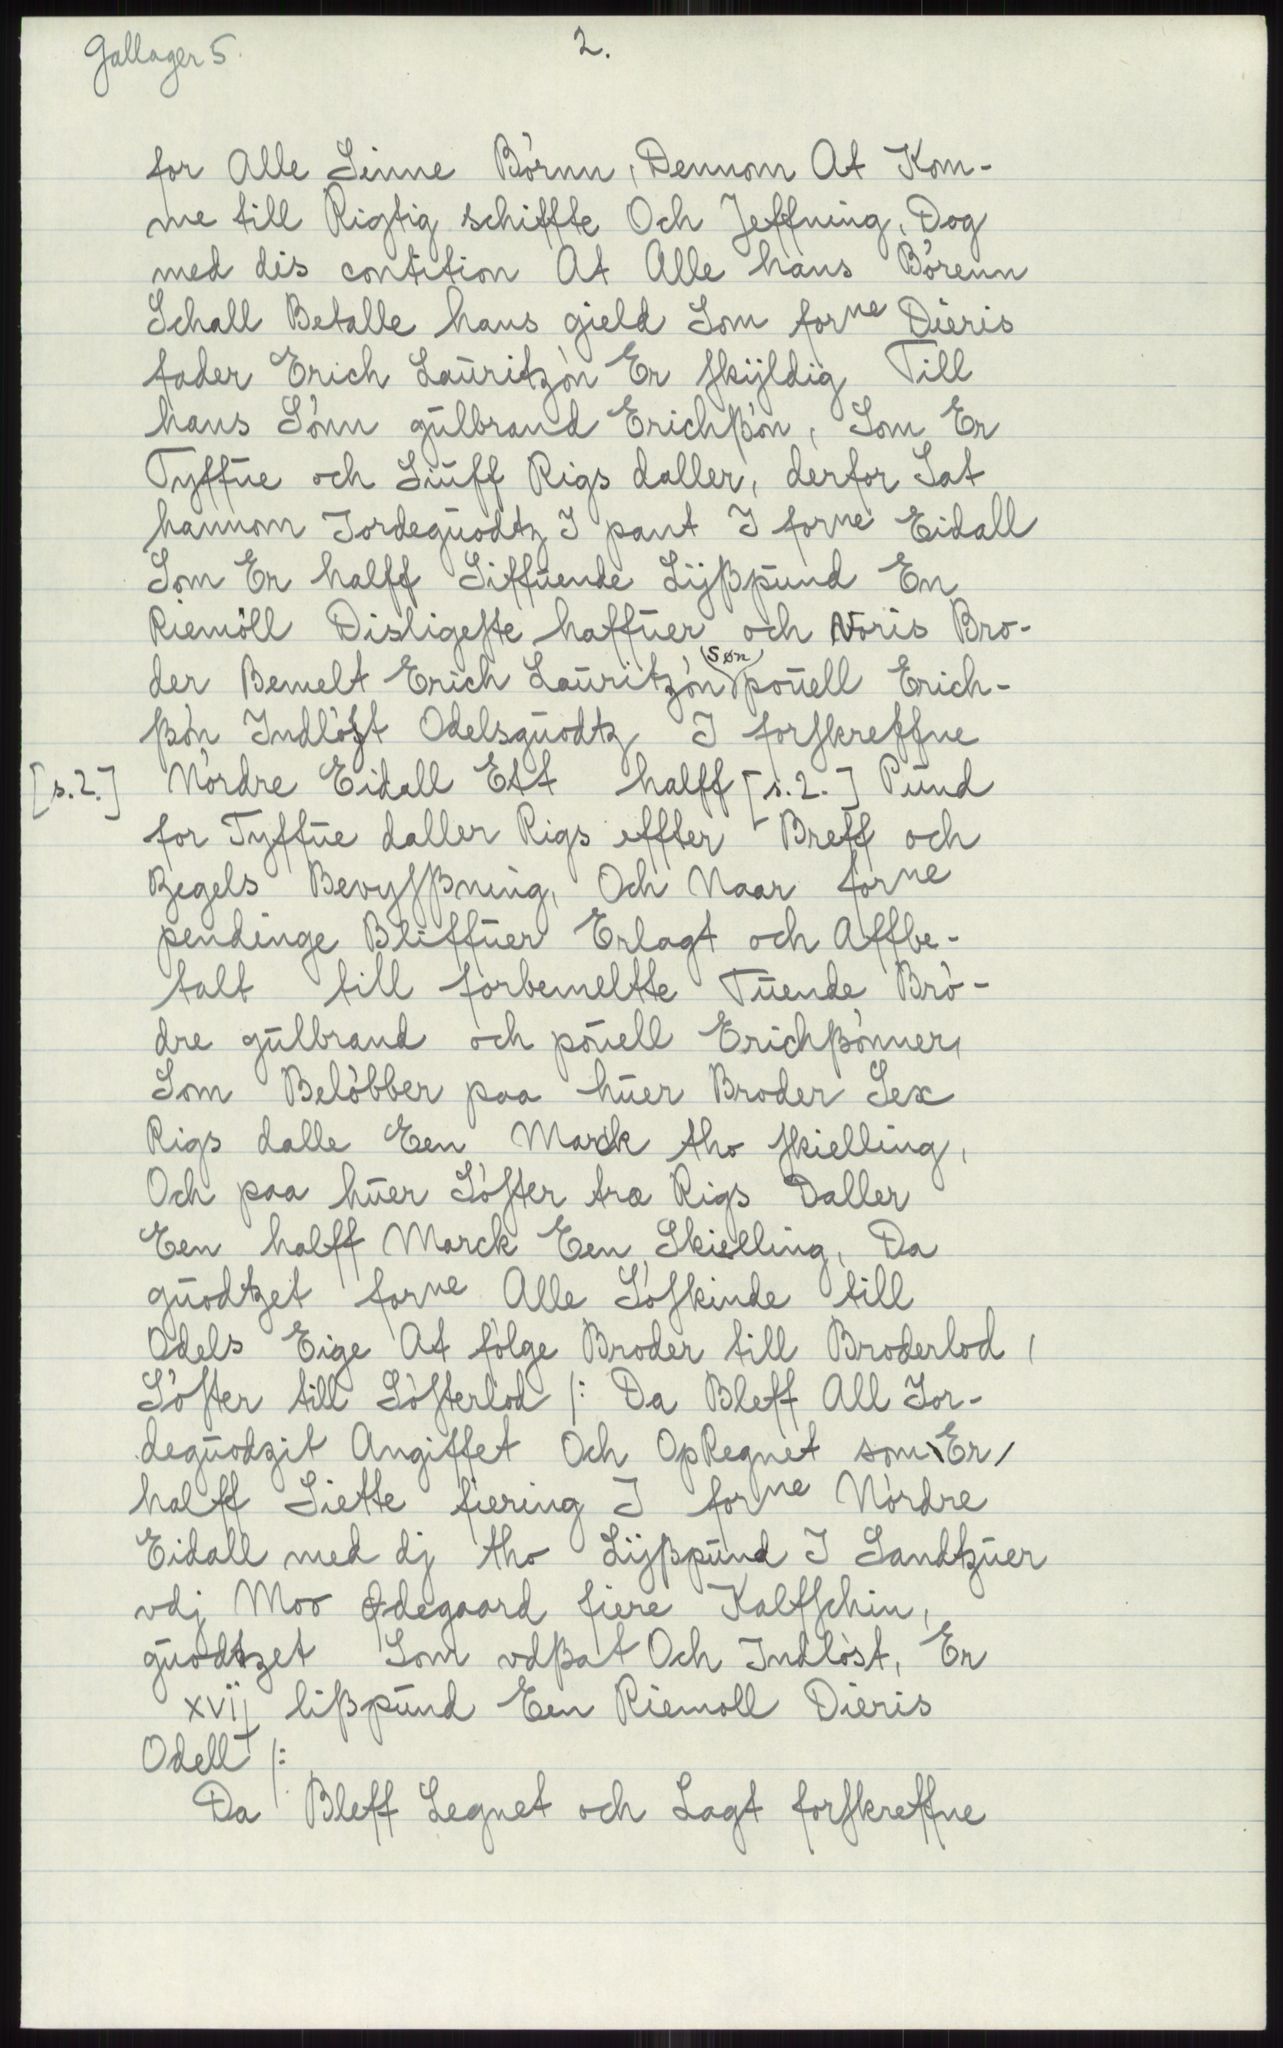 Gallager 5.
2.
for Alle Sinne Börnn, Dennom At Kom-
me till Rigtig schiffte Och Jeffning, Dog
med dis contition At Alle hans Börenn
Schall Betalle hans gield Som forne Dieris
fader Erich Lauritzön Er skÿldig Till
hans Sönn gulbrand Erichßön, Som Er
Tyffue och Siuff Rigs daller, derfor Sat
hannom Jordeguodtz I pant I forne Eidall
Som Er halff Siffuende Lÿßpund En
Riemöll Disligeste haffuer och Voris Bro-
der Bemelt Erich Lauritzön (søn) pouell Erich-
ßön Indlöst Odelsguodtz I forskreffne
[s.2.] Nördre Eidall Ett halff [s.2.] Pund
for Tyffue daller Rigs effter Breff och
Zegels Bevysßning, Och Naar forne
pendinge Bliffuer Erlagt och Affbe-
talt till forbemeltte Tuende Brö-
dre gulbrand och pouell Erichßönner,
Som Belöbber paa huer Broder Sex
Rigs dalle Een Marck tho skielling,
Och paa huer Söster træ Rigs Daller
Een halff Marck Een Skielling, Da
guodtzet forne Alle Söskinde till
Odels Eige At fölge Broder till Broderlod,
Söster till Sösterlod /: Da Bleff All Jor-
deguodzit Angiffet Och OpRegnet som Er/
halff Siette fiering I forne Nördre
Eidall med dj tho Lÿßpund I Sandtzuer
vdj Moo Ødegaard fiere Kalfschin,
guodtzet Som vdßat Och Indlöst, Er
xvij lißpund Een Riemoll Dieris
Odell /:
Da Bleff Legnet och Lagt forskreffne